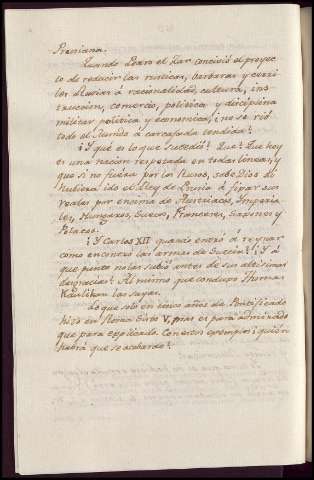 Prusiana.
Quando Pedro el Zar concivió el proyec-
to de reducir las rusticas, barbaras y cerri-
les Rusias á racionalidad, cultura, ins-
truccion, comercio, politica y disciplina
militar politica y economica, ¿no se rió
todo el Mundo á carcajada tendida?
¿Y que es lo que sucedió? Que? Que hoy
es una nacion respetada en todas lineas, y
que si no fuera por los Rusos, sabe Dios di
hubiera ido el Rey de Prusia á fixar sus
reales por encima de Austriacos, Imperia-
les, Hungaros, Suecos, Franceses, Saxones y
Polacos.
¿Y Carlos XII quando entró á reynar
como encontró las armas de Suecia? ¿Y á
que punto no las subio antes de sus ultimas
desgracias? Al mismo que conduxo Thamas
Kaulikan las suyas.
Lo que solo en cinco años de Pontificado
hizo en Roma Sixto V, mas es para admirado
que para explicado. Con estos exemplos ¿quién
habrá que se acobarde?